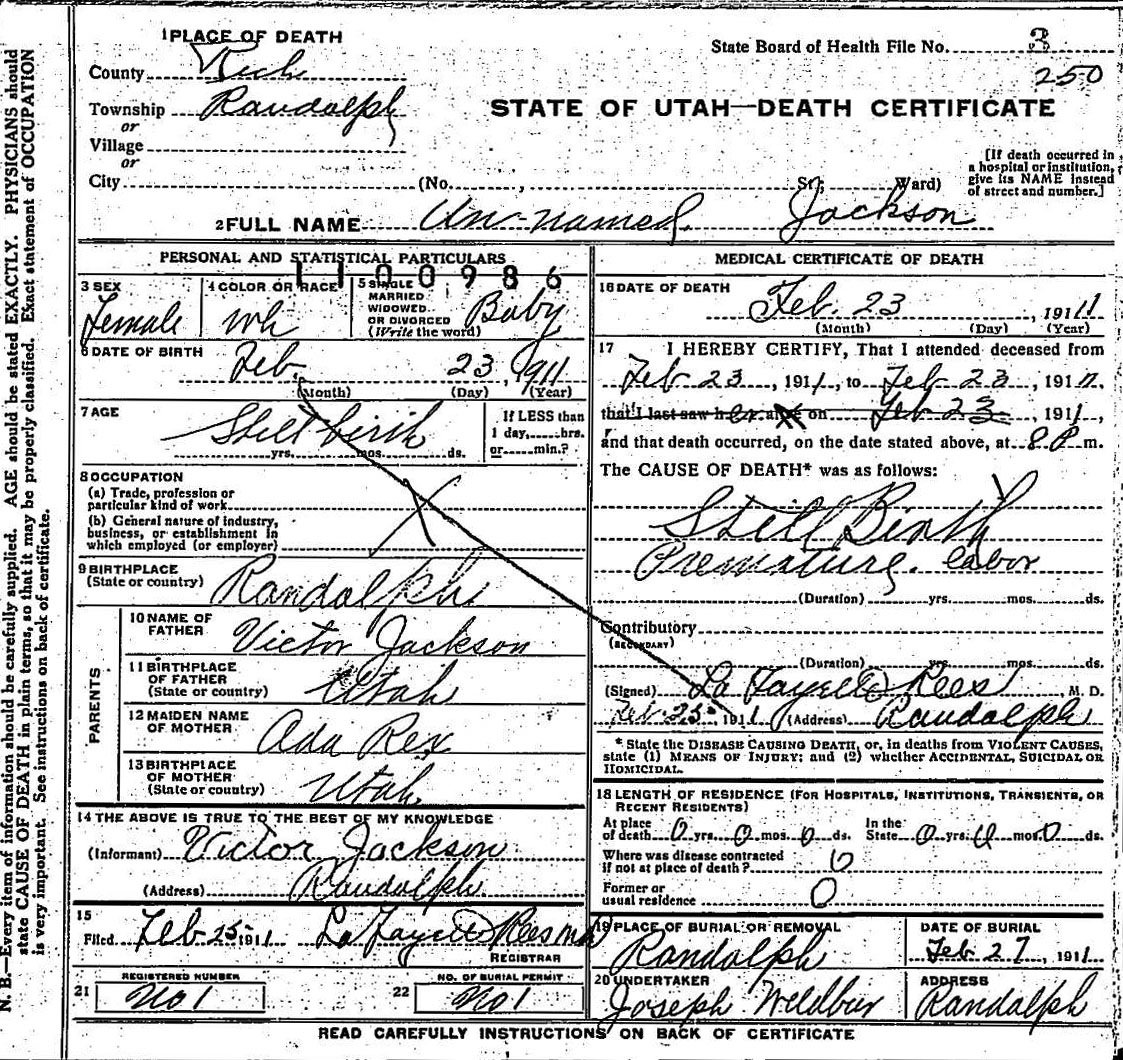 1 PLACE OF DEATH
State Board of Health File No. 3
250
County Rich
Township Randolph
or
Village
or
City (No. , St; Ward)
STATE OF UTAH—DEATH CERTIFICATE
[If death occurred in a hospital or institution, give its NAME instead of street and number.]
2 FULL NAME Un-named Jackson
PERSONAL AND STATISTICAL PARTICULARS
1100986
3 SEX
Female
4 COLOR OR RACE
wh
5 SINGLE MARRIED WIDOWED OR DIVORCED (Write the word)
Baby
6 DATE OF BIRTH
Feb. 23, 1911
(Month) (Day) (Year)
7 AGE
Still birth
yrs. mos. ds.
If LESS than 1 day, hrs. or min.?
8 OCCUPATION
(a) Trade, profession or particular kind of work
(b) General nature of industry, business, or establishment in which employed (or employer)
9 BIRTHPLACE (State or country) Randolph
PARENTS
10 NAME OF FATHER Victor Jackson
11 BIRTHPLACE OF FATHER (State or country) Utah
12 MAIDEN NAME OF MOTHER Ada Rex
13 BIRTHPLACE OF MOTHER (State or country) Utah
14 THE ABOVE IS TRUE TO THE BEST OF MY KNOWLEDGE
(Informant) Victor Jackson
(Address) Randolph
15
Filed Feb 25 1911 La Fayette Rees MD
REGISTRAR
REGISTERED NUMBER
21 No 1
NO. OF BURIAL PERMIT
22 No 1
MEDICAL CERTIFICATE OF DEATH
16 DATE OF DEATH
Feb. 23, 1911
(Month) (Day) (Year)
17 I HEREBY CERTIFY, That I attended deceased from
Feb 23, 1911, to Feb 23, 1911.
that I last saw her alive on Feb 23, 1911,
and that death occurred, on the date stated above, at 8 P m.
The CAUSE OF DEATH* was as follows:
Still Birth
Premature labor
(Duration) yrs. mos. ds.
Contributory
(SECONDARY)
(Duration) yrs. mos. ds.
(Signed) La Fayette Rees, M. D.
Feb 25, 1911 (Address) Randolph
* State the DISEASE CAUSING DEATH, or, in deaths from VIOLENT CAUSES,
state (1) MEANS OF INJURY; and (2) whether ACCIDENTAL, SUICIDAL OR
HOMICIDAL.
18 LENGTH OF RESIDENCE (FOR HOSPITALS, INSTITUTIONS, TRANSIENTS, OR
RECENT RESIDENTS)
At place of death 0 yrs. 0 mos. 0 ds. In the State 0 yrs. 0 mos. 0 ds.
Where was disease contracted if not at place of death? 0
Former or usual residence 0
19 PLACE OF BURIAL OR REMOVAL
Randolph
DATE OF BURIAL
Feb 27, 1911.
20 UNDERTAKER
Joseph
ADDRESS
Randolph
READ CAREFULLY INSTRUCTIONS ON BACK OF CERTIFICATE
N. B.—Every item of information should be carefully supplied. AGE should be stated EXACTLY. PHYSICIANS should
state CAUSE OF DEATH in plain terms, so that it may be properly classified. Exact statement of OCCUPATION
is very important. See instructions on back of certificate.